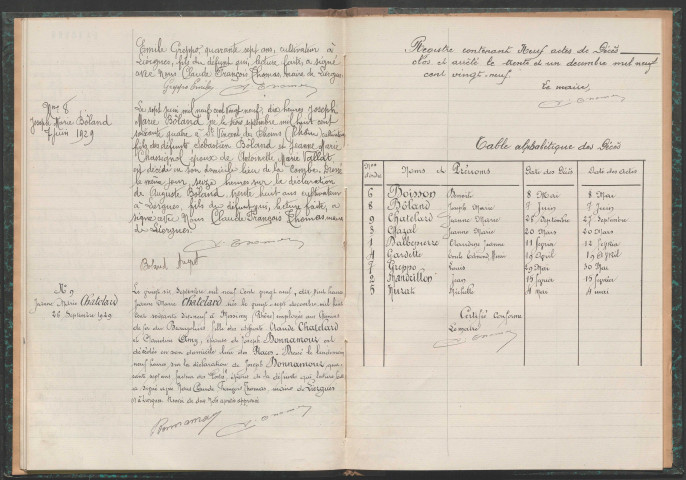 Emile Greppo, quarante sept ans, cultivateur à
Liergues, fils du défunt qui, lecture faite, a signé
avec Nous Claude François Thomas, maire de Liergues.
Greppo Emile
N° 8
Joseph Marie Béland
7 Juin 1929
Le sept juin mil neuf cent vingt neuf, dix heures, Joseph
Marie Béland, né le trois septembre mil huit cent
soixante quatre à St Vincent de Rheins (Rhône) cultivateur
fils des défunts Sébastien Béland et Jeanne Marie
Chassignol, époux de Antoinette Marie Vallat
est décédé en son domicile lieu de la Combe. Dressé
le même jour, seize heures sur la déclaration
de Auguste Béland, trente huit ans cultivateur
à Liergues, fils du défunt qui, lecture faite, a
signé avec Nous Claude François Thomas, maire
de Liergues.
Béland
N° 9
Jeanne Marie Chatelard
26 Septembre 1929
Le vingt six Septembre mil neuf cent vingt neuf, neuf heures
Jeanne Marie Chatelard née le vingt sept décembre mil huit
cent soixante à Messimy (Rhône) employée aux Chemins
de fer du Beaujolais fille des défunts Claude Chatelard
et Claudine, épouse de Joseph Bonnamour est
décédée en son domicile lieu des Places. Dressé le lendemain
neuf heures sur la déclaration de Joseph Bonnamour
sept ans, époux de la défunte qui, lecture faite
a signé avec Nous Claude François Thomas, maire de Liergues
Bonnamour
Registre contenant Neuf actes de Décès
clos et arrêté le trente et un décembre mil neuf
cent vingt-neuf.
Le maire,
Table alphabétique des Décès
Nos Noms et Prénoms Date des Décès Date des Actes
6 Boisson Benoît 8 Mai 8 Mai
8 Béland Joseph Marie 7 Juin 7 Juin
9 Chatelard Jeanne Marie 26 Septembre 27 Septembre
3 Jeanne Marie 20 Mars 20 Mars
1 Claudine Jeanne 11 février 12 février
4 Gardette 19 Avril 19 Avril
7 Greppo Louis 29 Mai 30 Mai
2 Mandrillon Jean 15 février 15 février
5 Murat Michelle 4 mai 4 mai
Certifié Conforme
Le maire